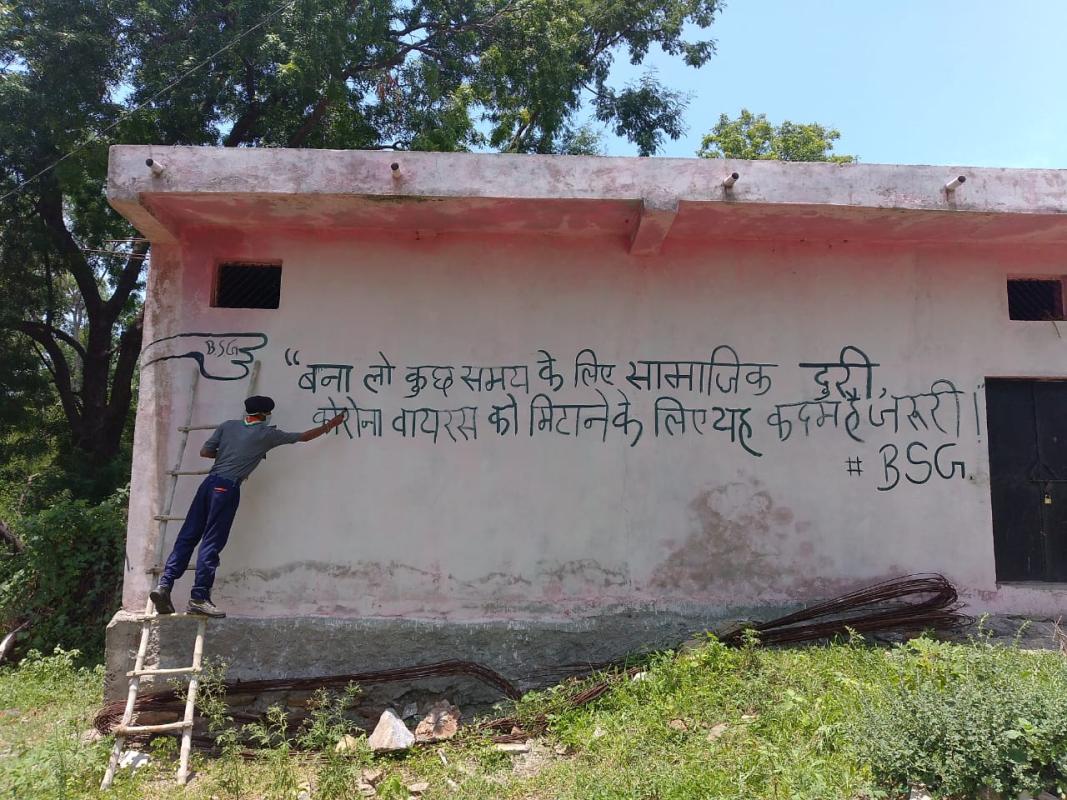 BSG
“बना लो कुछ समय के लिए सामाजिक दुरी,
कोरोना वायरस को मिटाने के लिए यह कदम है जरूरी।"
# BSG.